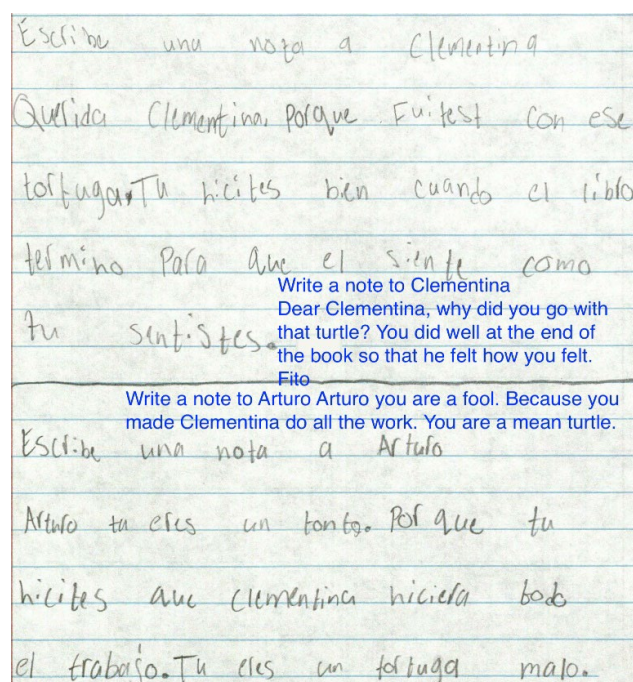 Escribe una nota a Clementina
Querida Clementina, Porque Fuitest con ese
tortuga. Tu hicites bien cuando el libro
termino Para que el siente como
tu sentistes.
Write a note to Clementina
Dear Clementina, why did you go with
that turtle? You did well at the end of
the book so that he felt how you felt.
Fito
Write a note to Arturo Arturo you are a fool. Because you
made Clementina do all the work. You are a mean turtle.
Escribe una nota a Arturo
Arturo tu eres un tonto. Por que tu
hicites que Clementina hiciera todo
el trabajo. Tu eres un tortuga malo.